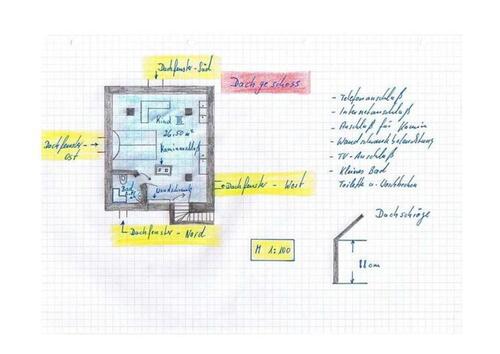 Dachfenster-Süd
Dachgeschoss
Kind III
26.50 m²
Kaminanschluß
Dachfenster-
Ost
Bad
Wandschrank
Dachfenster - West
Dachfenster - Nord
M 1:100
- Telefonanschluß
- Internetanschluß
- Anschluß für Kamin
- Wandschrankbeleuchtung
- TV-Anschluß
- Kleines Bad
Toilette u. Waschbecken
Dachschräge
88cm